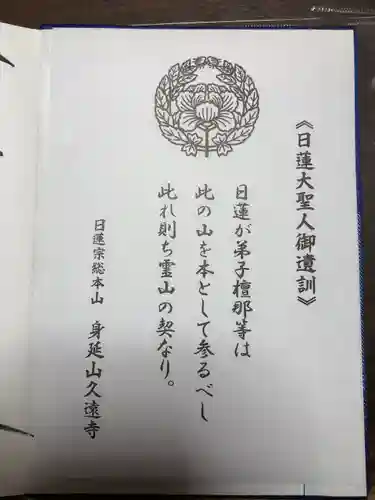 《日蓮大聖人御遺訓》
日蓮が弟子檀那等は
此の山を本として参るべし
此れ則ち霊山の契なり。
日蓮宗総本山 身延山久遠寺